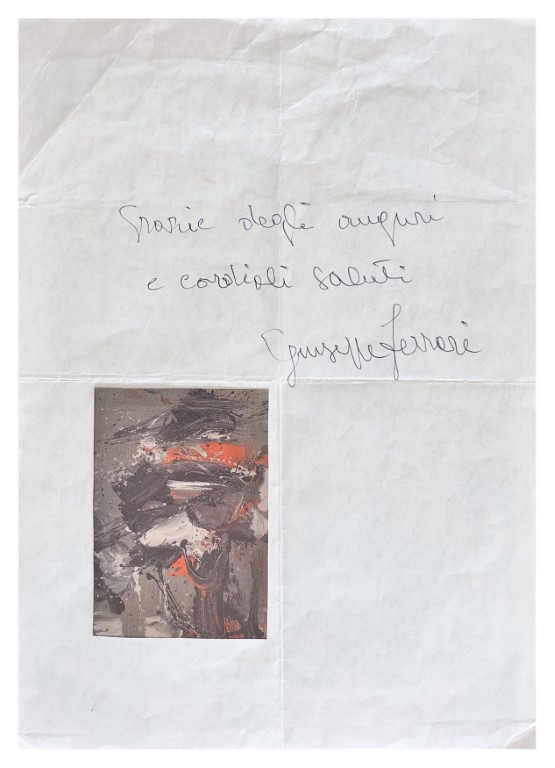 Grazie degli auguri
e cordiali saluti
Giuseppe Ferrari